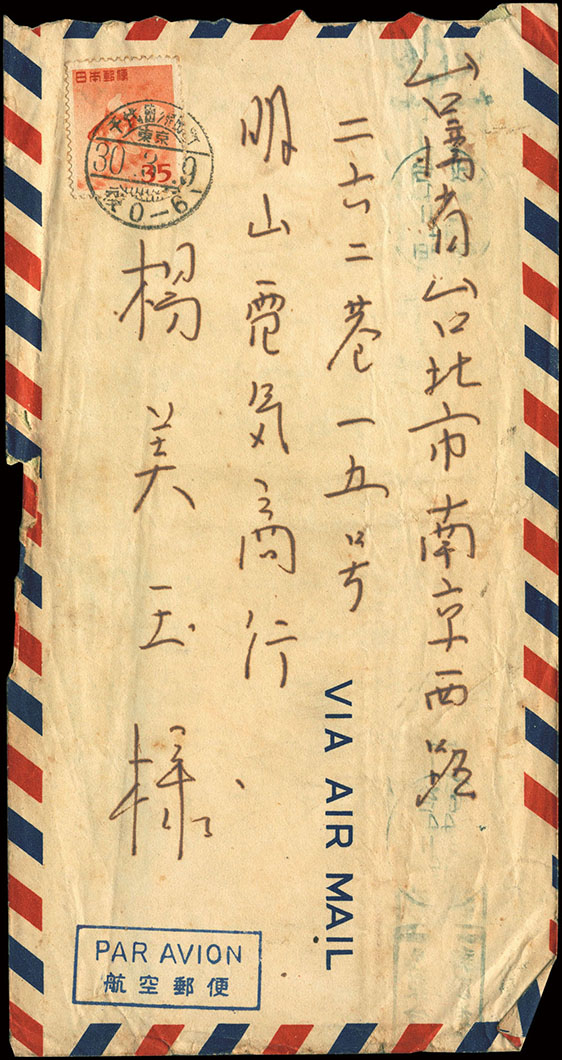 台湾省台北市南京西路
二六二巷一五号
明山電気商行
楊美玉様
日本郵便
東京
30.3.9
35
0-6
VIA AIR MAIL
PAR AVION
航空郵便